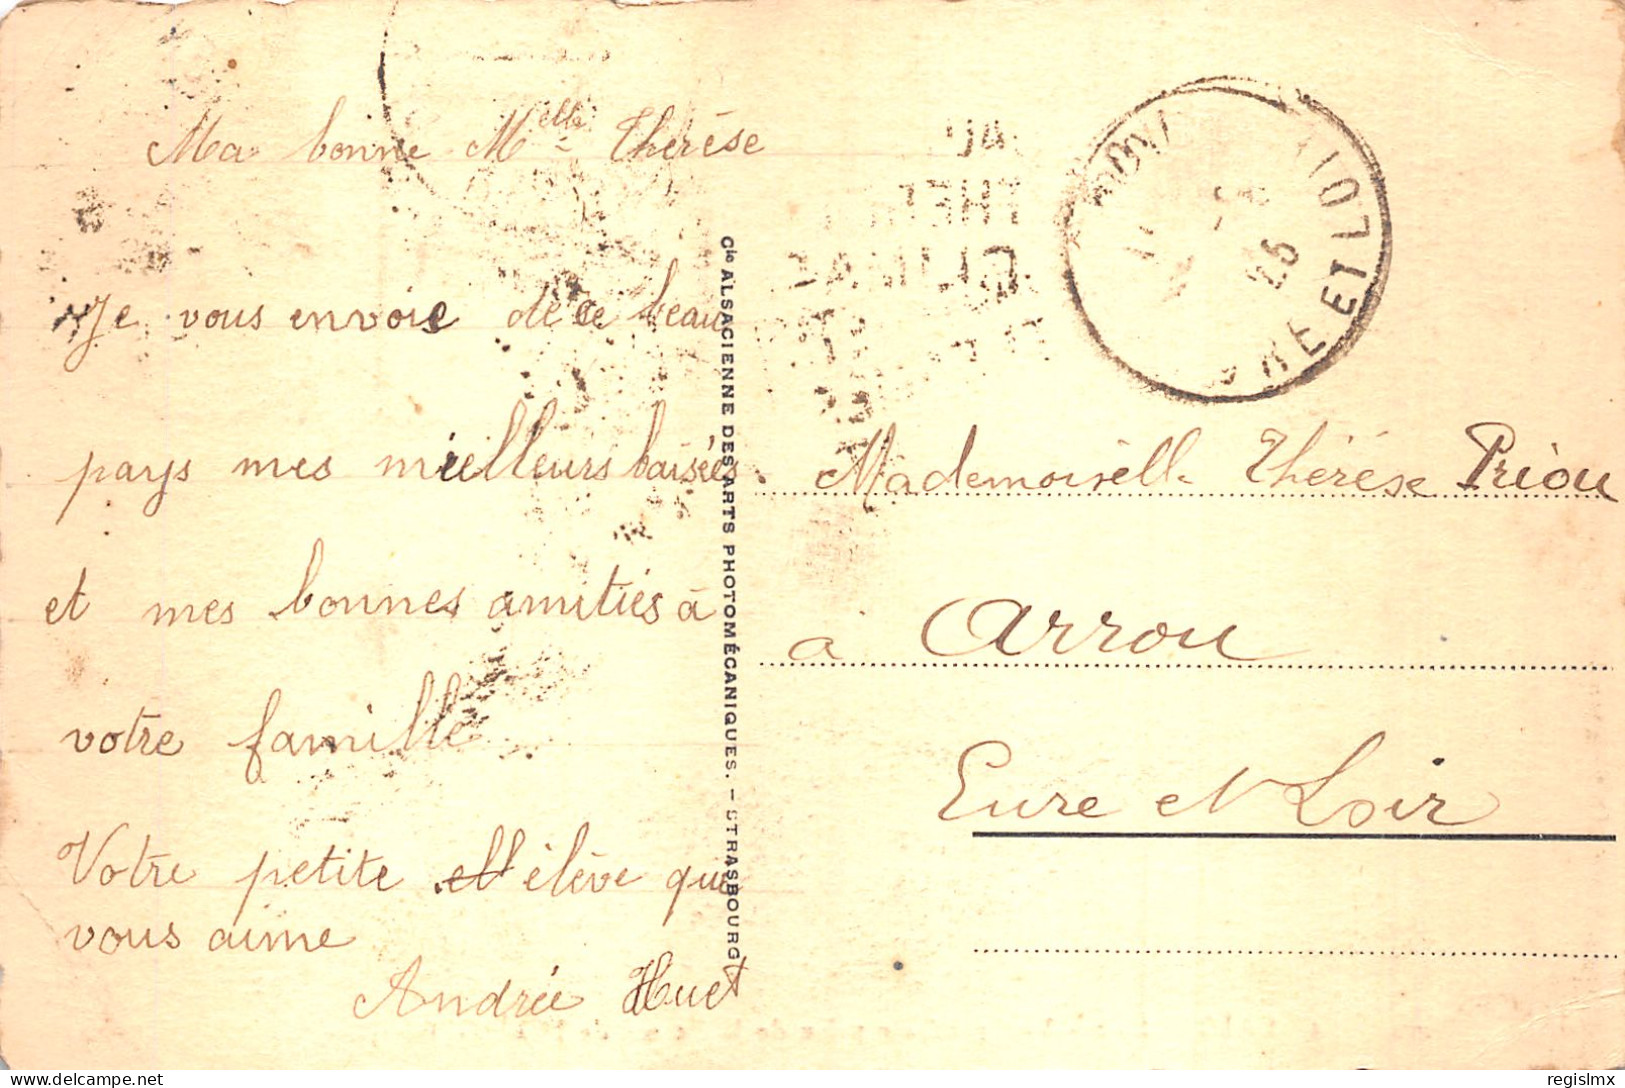 Ma bonne Melle Thérèse
Je vous envoie de ce beau
pays mes meilleurs baisées
et mes bonnes amitiés à
votre famille
Votre petite élève que
vous aime
Andrée Huet
Cie ALSACIENNE DES ARTS PHOTOMÉCANIQUES. - STRASBOURG
ET LOIR
25
Mademoisell. Thérèse Priou
à Arrou
Eure et Loir
delcampe.net
regislmx